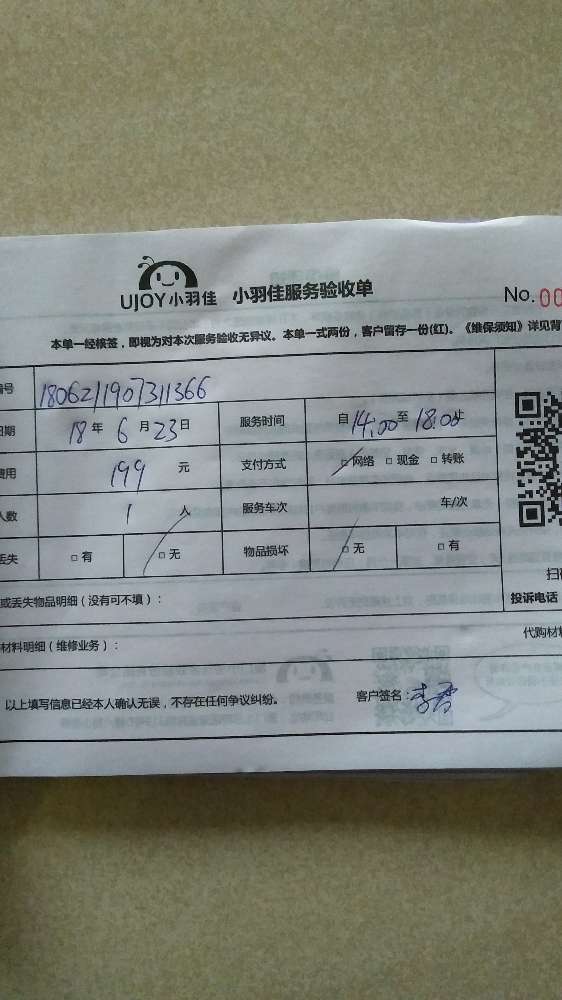 UJOY小羽佳 小羽佳服务验收单
No. 00
本单一经核签，即视为对本次服务验收无异议。本单一式两份，客户留存一份(红)。《维保须知》详见背
编号 1806211907311366
日期 18 年 6 月 23 日 服务时间 自 14:00 至 18:00 止
费用 199 元 支付方式 □ 网络 □ 现金 □ 转账
人数 1 人 服务车次 车/次
丢失 □ 有 □ 无 物品损坏 □ 无 □ 有
扫
或丢失物品明细（没有可不填）： 投诉电话
材料明细（维修业务）： 代购材
以上填写信息已经本人确认无误，不存在任何争议纠纷。 客户签名：李香